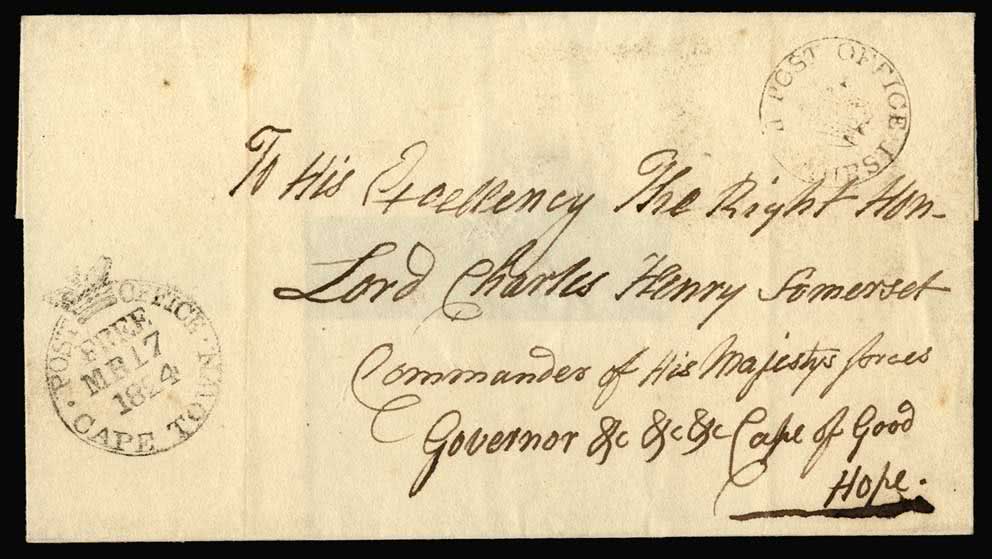 POST OFFICE
To His Excellency The Right Hon-
Lord Charles Henry Somerset
Commander of His Majestys forces
Governor &c &c &c Cape of Good
Hope.
POST OFFICE
FREE
MR 17
1824
CAPE TOWN